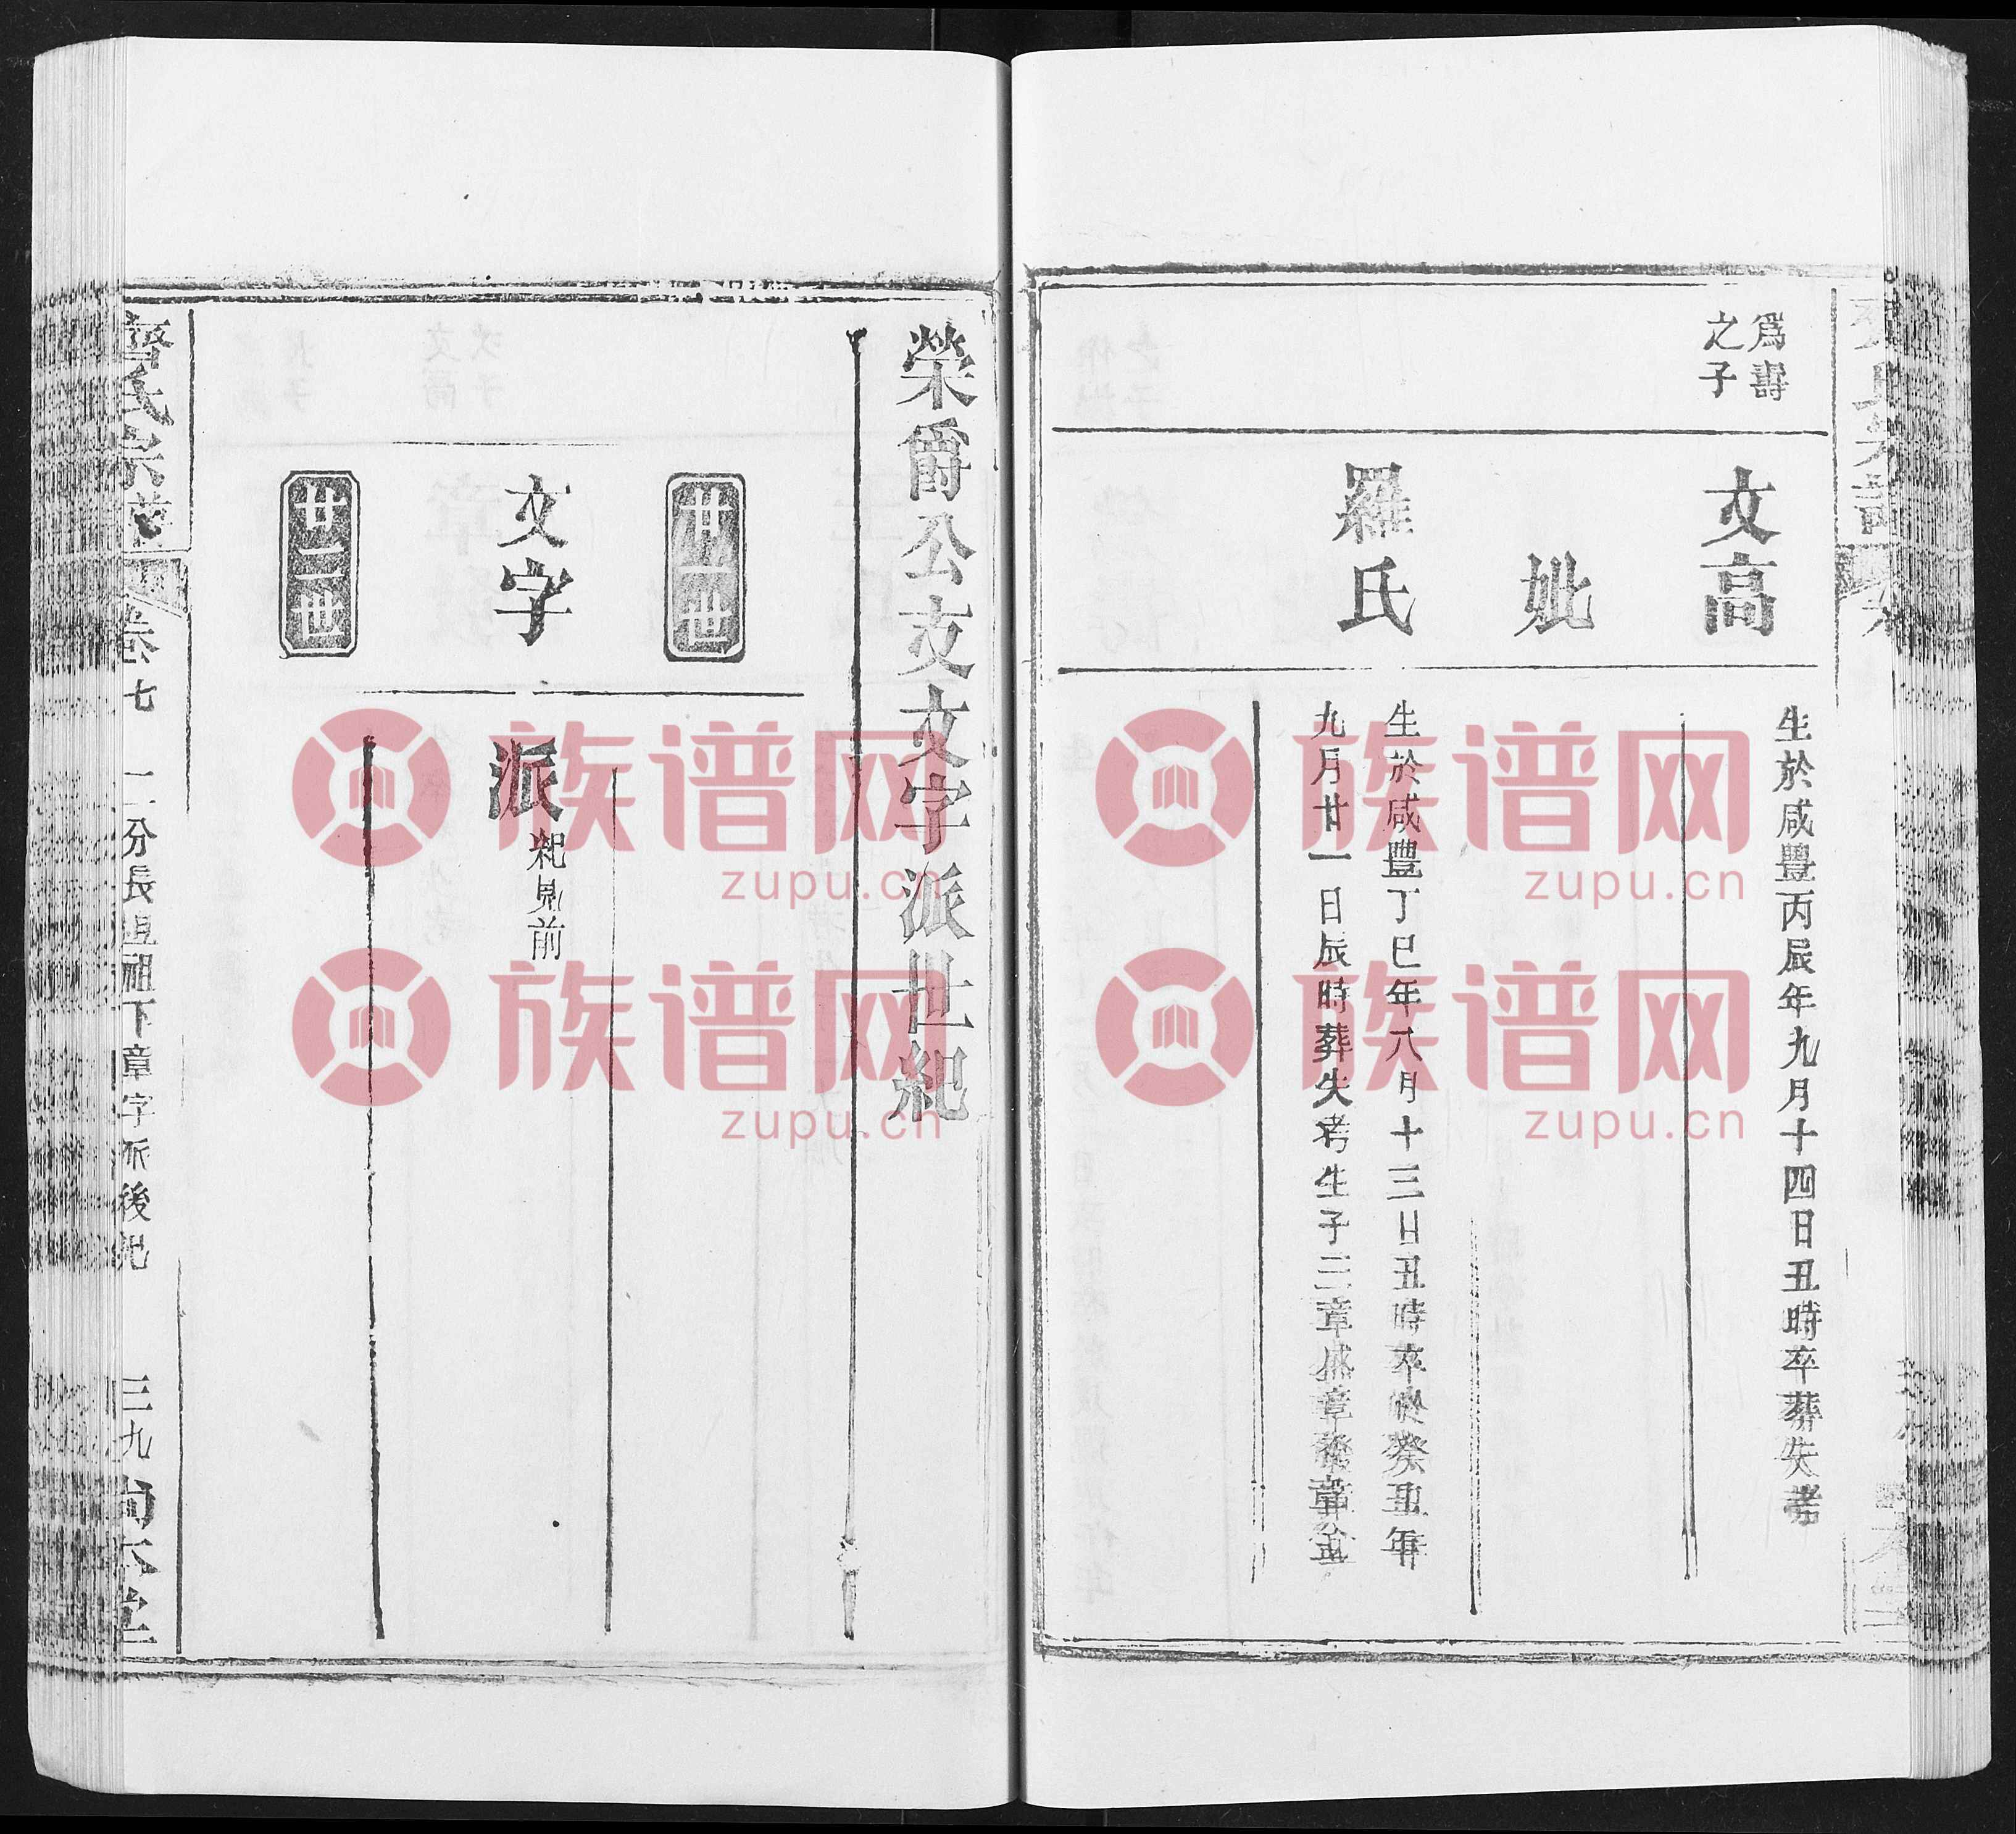 爲壽
之子
文高
生於咸豐丙辰年九月十四日丑時卒葬失考
妣
羅氏
生於咸豐丁巳年八月十三日丑時卒於癸丑年
九月廿一日辰時葬失考生子三章盛章發章金
榮爵公支文字派世紀
廿一世
文字
派
紀見前
廿二世
齊氏宗譜
卷七
二分長違祖下章字派後紀
三九
尚本堂
族谱网
zupu.cn
族谱网
zupu.cn
族谱网
zupu.cn
族谱网
zupu.cn